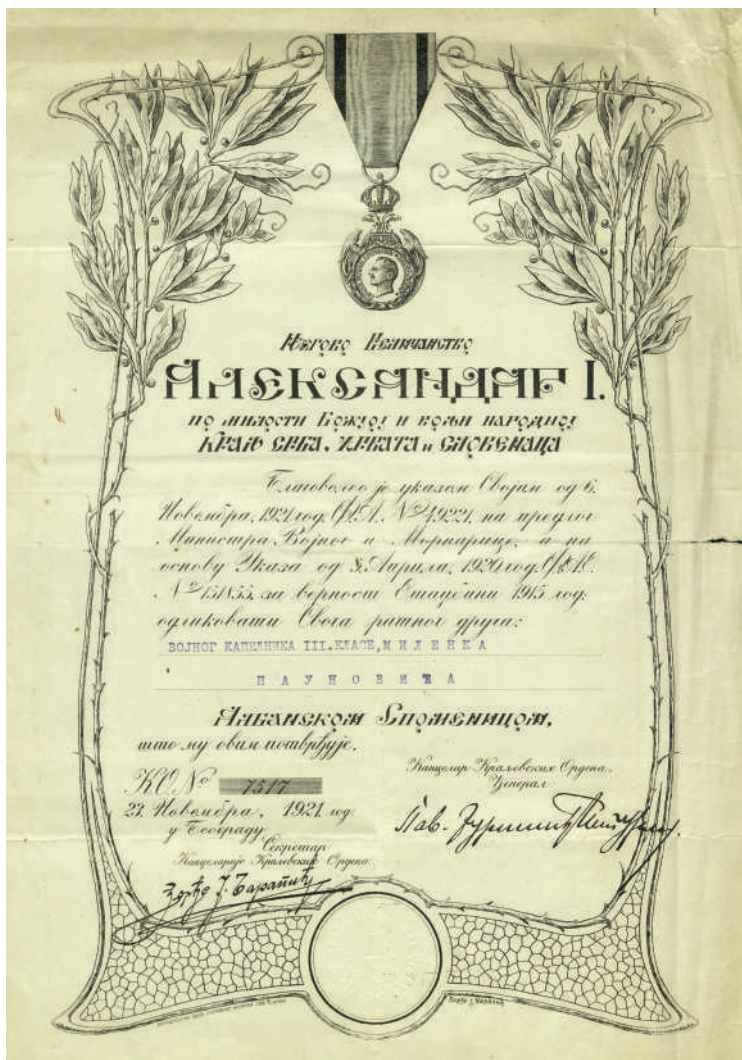 Његово Величанство
АЛЕКСАНДАР I.
по милости Божјој и вољи народној
КРАЉ СРБА, ХРВАТА и СЛОВЕНАЦА
Благоволео је указом Својим од 6.
Новембра, 1921 год. Ф.Ђ.А. № 49221, на предлог
Министра Војног и Морнарице, а на
основу Указа од 5. Априла, 1920 год. Ф.Ђ.О.
№ 151855, за верност Отаџбини 1915 год.
одликовати Свога ратног друга:
ВОЈНОГ КАПЕЛНИКА III. КЛАСЕ, МИЛЕНКА
ПАУНОВИЋА
Албанском Споменицом,
што му овим потврђује.
КО № 7517
Канцелар Краљевских Ордена,
Ђенерал
23. Новембра, 1921. год.
у Београду.
Секретар
Канцеларије Краљевских Ордена